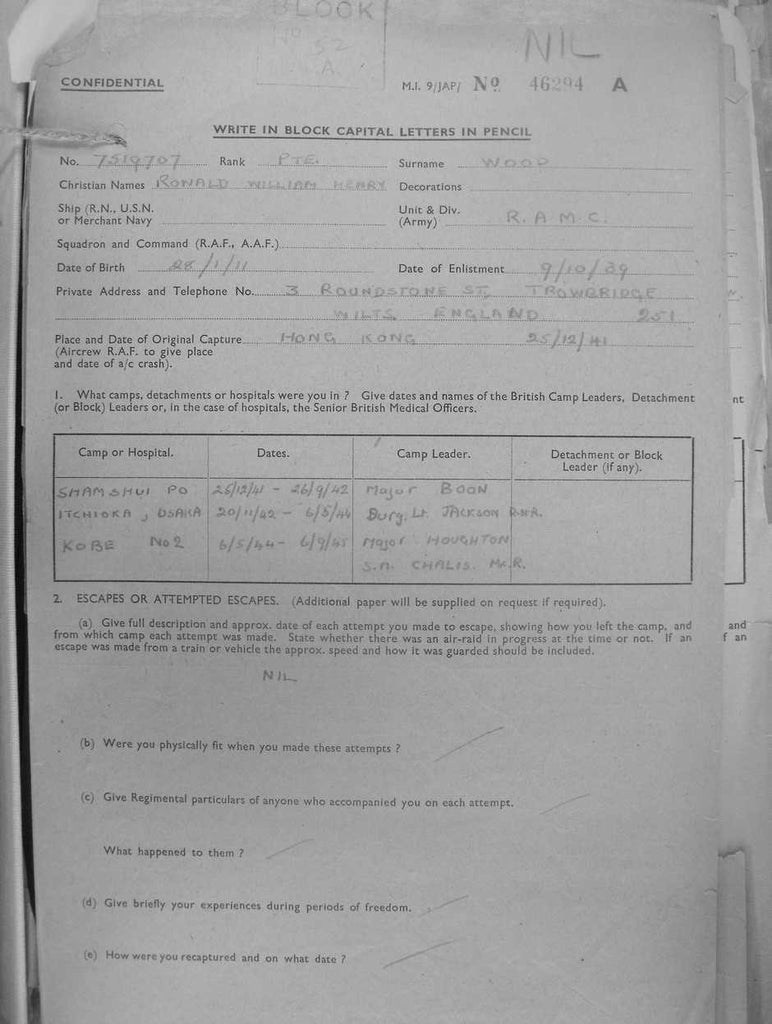 BLOCK
No 52
A.
NIL
CONFIDENTIAL
M.I. 9/JAP/ No 46294 A
WRITE IN BLOCK CAPITAL LETTERS IN PENCIL
No. 7519707 Rank PTE. Surname WOOD
Christian Names RONALD WILLIAM HENRY Decorations
Ship (R.N., U.S.N. or Merchant Navy
Unit & Div. (Army) R.A.M.C.
Squadron and Command (R.A.F., A.A.F.)
Date of Birth 28/1/11 Date of Enlistment 9/10/39
Private Address and Telephone No. 3 ROUNDSTONE ST, TROWBRIDGE
WILTS, ENGLAND 251
Place and Date of Original Capture HONG KONG 25/12/41
(Aircrew R.A.F. to give place
and date of a/c crash).
1. What camps, detachments or hospitals were you in ? Give dates and names of the British Camp Leaders, Detachment
(or Block) Leaders or, in the case of hospitals, the Senior British Medical Officers.
Camp or Hospital. Dates. Camp Leader. Detachment or Block
Leader (if any).
SHAMSHUI PO 25/12/41 - 26/9/42 Major BOON
ITCHIOKA, OSAKA 20/11/42 - 6/5/44 Surg. Lt. JACKSON R.N.R.
KOBE No 2 6/5/44 - 6/9/45 Major HOUGHTON
S.M. CHALIS. M.R.
2. ESCAPES OR ATTEMPTED ESCAPES. (Additional paper will be supplied on request if required).
(a) Give full description and approx. date of each attempt you made to escape, showing how you left the camp, and
from which camp each attempt was made. State whether there was an air-raid in progress at the time or not. If an
escape was made from a train or vehicle the approx. speed and how it was guarded should be included.
NIL
(b) Were you physically fit when you made these attempts ?
(c) Give Regimental particulars of anyone who accompanied you on each attempt.
What happened to them ?
(d) Give briefly your experiences during periods of freedom.
(e) How were you recaptured and on what date ?
nt
and
f an